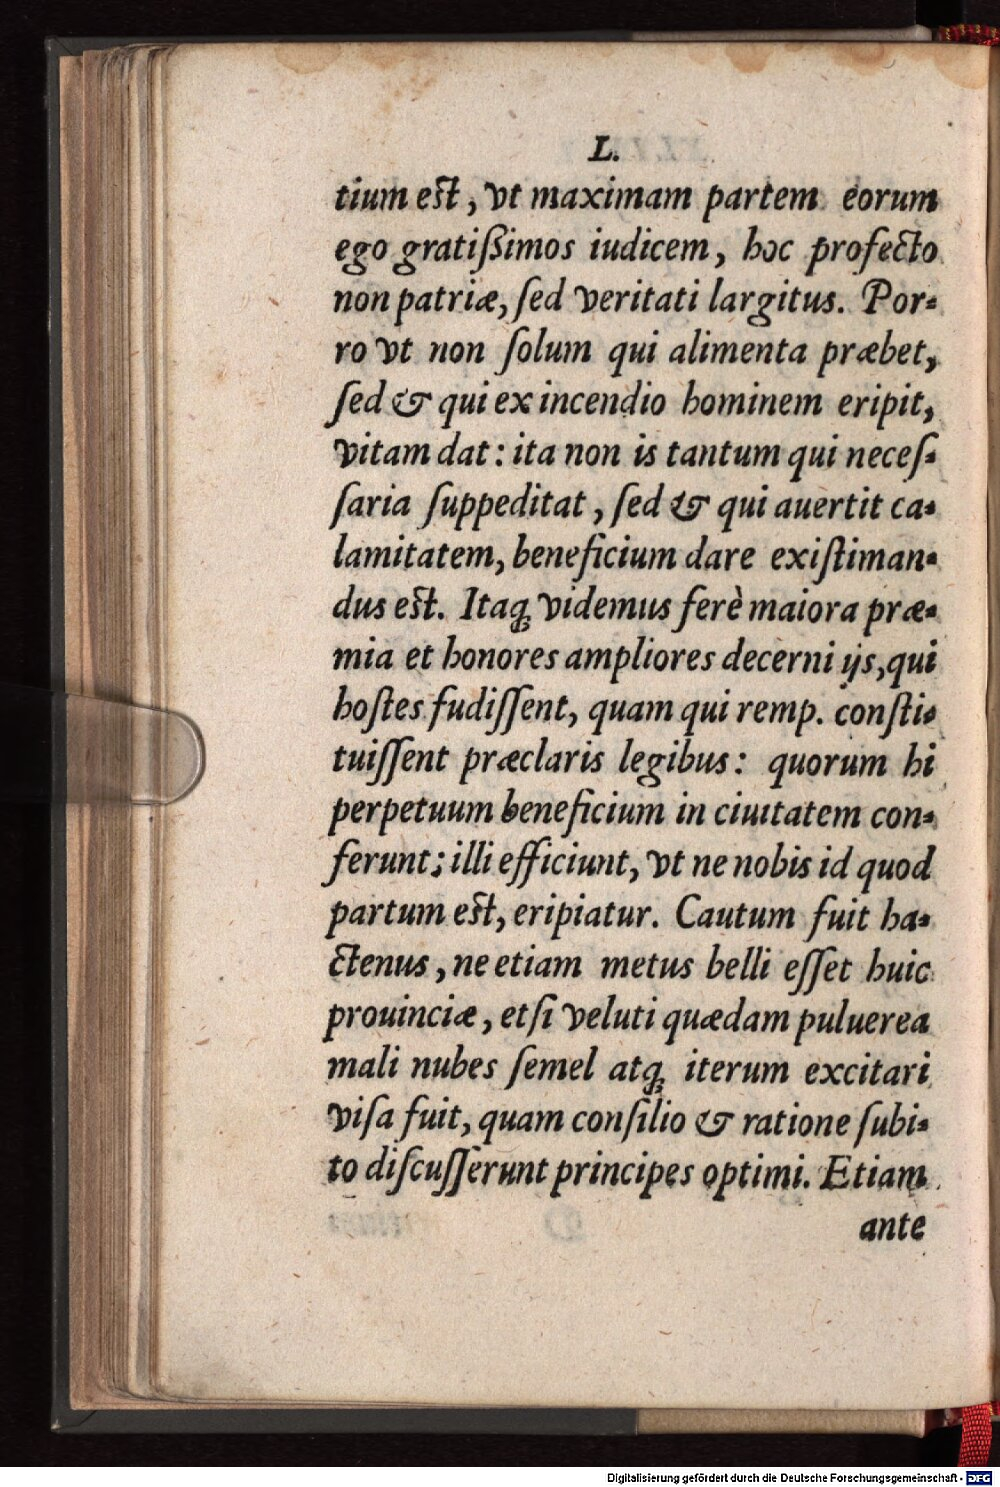 L.
tium est, vt maximam partem eorum
ego gratißimos iudicem, hoc profecto
non patriæ, ſed veritati largitus. Por-
ro vt non ſolum qui alimenta præbet,
ſed & qui ex incendio hominem eripit,
vitam dat: ita non is tantum qui neceſ-
ſaria ſuppeditat, ſed & qui auertit ca-
lamitatem, beneficium dare exiſtiman-
dus est. Itaqꝫ videmus ferè maiora præ-
mia et honores ampliores decerni ijs, qui
hoſtes fudiſſent, quam qui remp. conſti-
tuiſſent præclaris legibus: quorum hi
perpetuum beneficium in ciuitatem con-
ferunt; illi efficiunt, vt ne nobis id quod
partum est, eripiatur. Cautum fuit ha-
ctenus, ne etiam metus belli eſſet huic
prouinciæ, etſi veluti quædam puluerea
mali nubes ſemel atqꝫ iterum excitari
viſa fuit, quam conſilio & ratione ſubi-
to diſcuſſerunt principes optimi. Etiam
ante
Digitalisierung gefördert durch die Deutsche Forschungsgemeinschaft - DFG